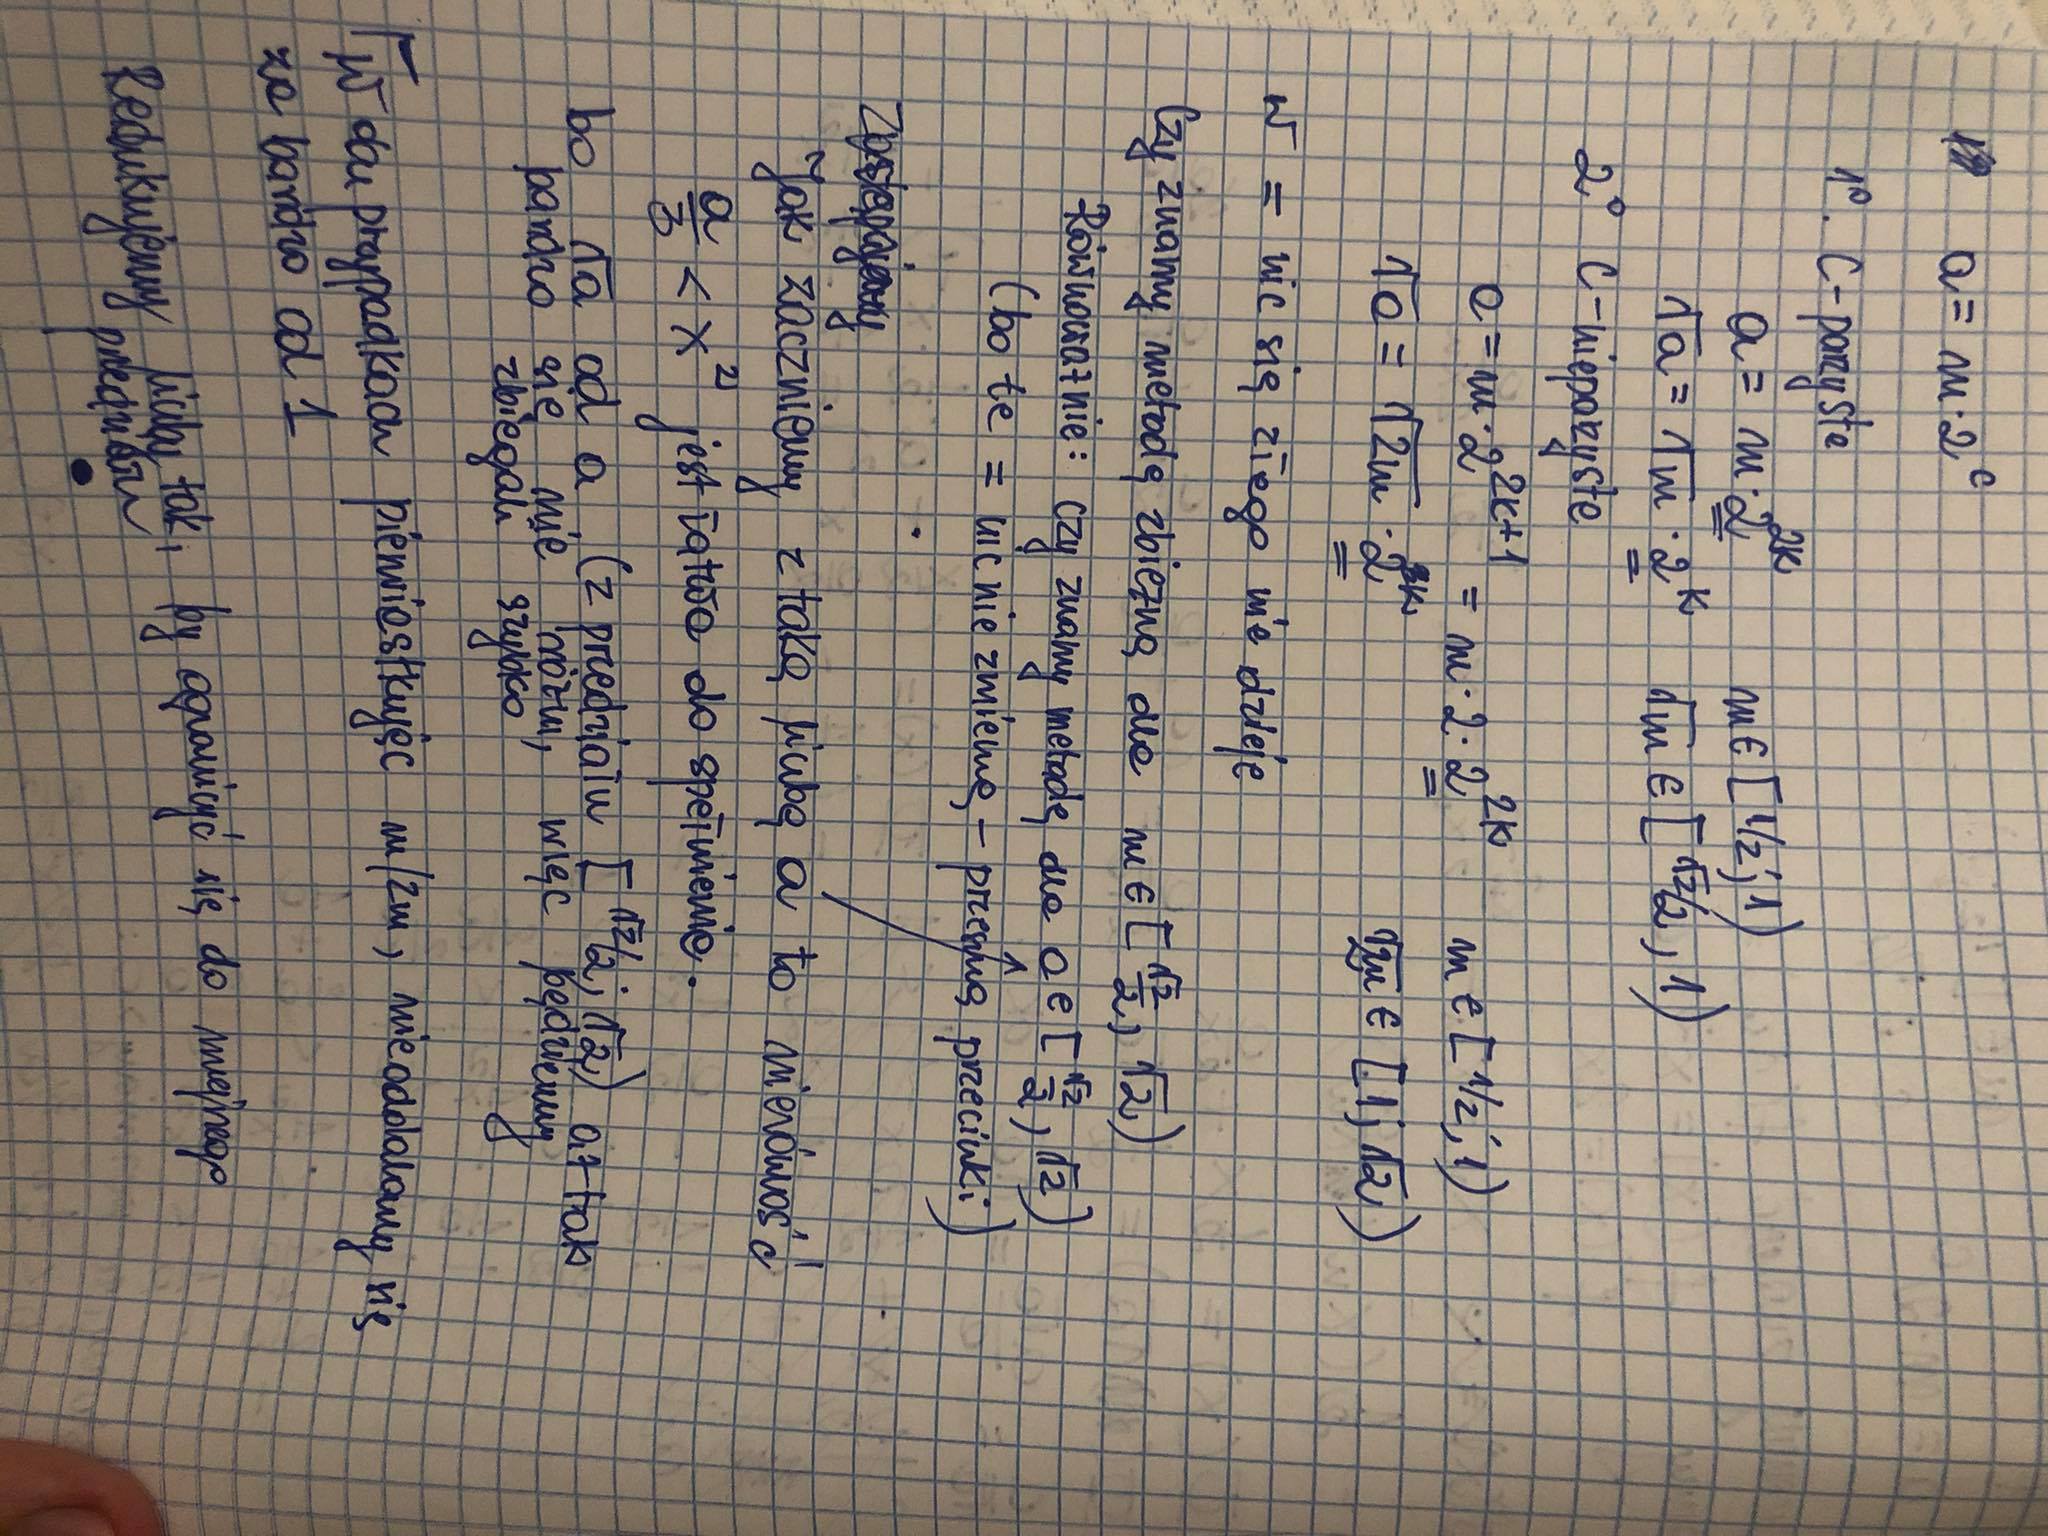 a = m·2^c
1°. C-parzyste
a = m·2^2k m∈[1/2; 1)
√a = √m · 2^k √m ∈ [√2/2, 1)
2° C-nieparzyste
a = m·2^2k+1 = m·2·2^2k m∈[1/2; 1)
√a = √2m · 2^k √2m ∈ [1; √2)
W = nic się złego nie dzieje
Czy znamy metodę zbieżną dla m∈[√2/2, √2)
Równoważnie: czy znamy metodę dla a∈[√2/2, √2)
(bo te = nic nie zmienią – przesuną przecinki)
Zastępujemy
Jak zaczniemy z taką liczbą a to nierówność
a/3 < x² jest łatwa do spełnienia.
bo √a od a (z przedziału [√2/2; √2) aż tak
bardzo się nie różni, więc będziemy
zbiegali szybko
W obu przypadkach pierwiastkując m/2m, nie oddalamy się
za bardzo od 1
Redukujemy liczby tak, by ograniczyć się do mniejszego
przedziału